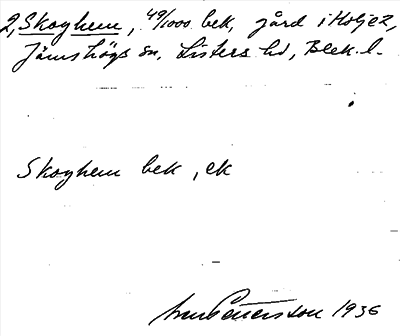 2, Skoghem, 49/1000 bek, gård i Holje 2,
Jämshögs sn, Listers hd, Blek. l.
Skoghem bek, ek
Pettersson 1936